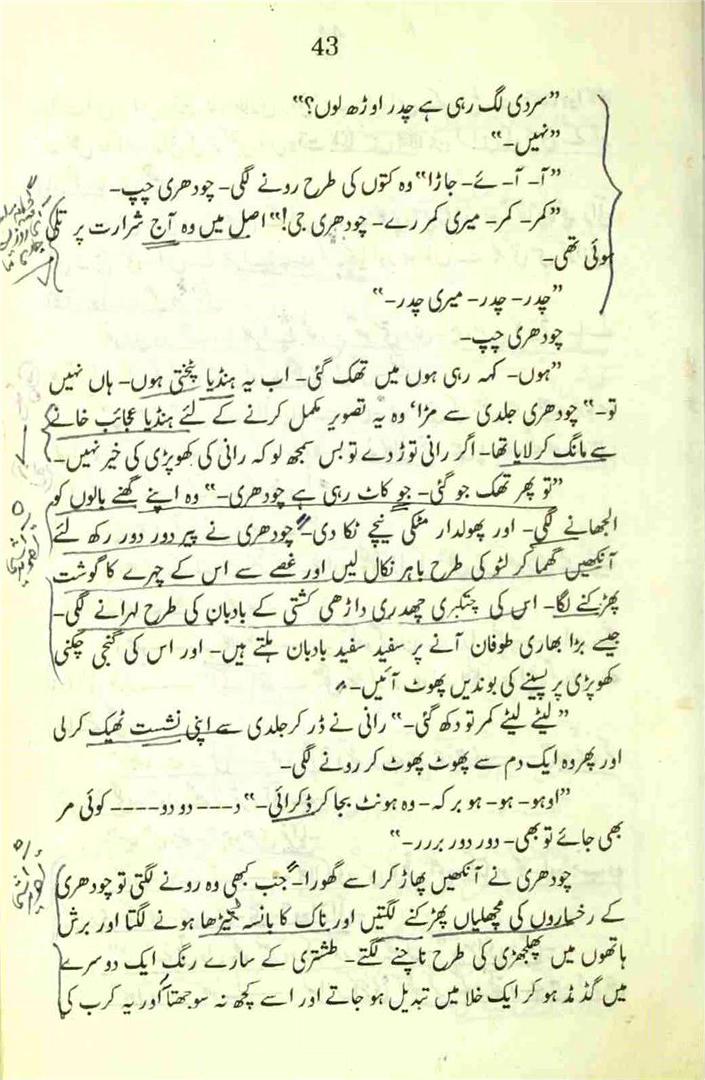 43
"سردی لگ رہی ہے چدر اوڑھ لوں؟"
"نہیں۔"
"آ۔ آ۔ ئے۔ جاڑا" وہ کتوں کی طرح رونے لگی۔ چودھری چپ۔
"کمر۔ کمر۔ میری کمر رے۔ چودھری جی!" اصل میں وہ آج شرارت پر تلی
ہوئی تھی۔
"چدر۔ چدر۔ میری چدر۔"
چودھری چپ۔
"ہوں۔ کہہ رہی ہوں میں تھک گئی۔ اب یہ ہنڈیا پٹختی ہوں۔ ہاں نہیں
تو۔" چودھری جلدی سے مڑا، وہ یہ تصویر مکمل کرنے کے لئے ہنڈیا عجائب خانے
سے مانگ کر لایا تھا۔ اگر رانی توڑ دے تو بس سمجھ لو کہ رانی کی کھوپڑی کی خیر نہیں۔
"تو پھر تھک جو گئی۔ جو کاٹ رہی ہے چودھری۔" وہ اپنے گھنے بالوں کو
الجھانے لگی۔ اور پھولدار مٹکی نیچے ٹکا دی۔ چودھری نے پیر دور دور رکھ لئے
آنکھیں گھما کر لٹو کی طرح باہر نکال لیں اور غصے سے اس کے چہرے کا گوشت
پھڑکنے لگا۔ اس کی چتکبری چھدری داڑھی کشتی کے بادبان کی طرح لہرانے لگی۔
جیسے بڑا بھاری طوفان آنے پر سفید سفید بادبان ہلتے ہیں۔ اور اس کی گنجی چکنی
کھوپڑی پر پسینے کی بوندیں پھوٹ آئیں۔
"لیٹے لیٹے کمر تو دکھ گئی۔" رانی نے ڈر کر جلدی سے اپنی نشست ٹھیک کر لی
اور پھر وہ ایک دم سے پھوٹ پھوٹ کر رونے لگی۔
"اوہو۔ ہو۔ ہو بر کہ۔ وہ ہونٹ بجا کر ڈکرائی۔" د۔۔۔ دو دو۔۔۔۔ کوئی مر
بھی جائے تو بھی۔ دور دور بررر۔"
چودھری نے آنکھیں پھاڑ کر اسے گھورا۔ جب کبھی وہ رونے لگتی تو چودھری
کے رخساروں کی مچھلیاں پھڑکنے لگتیں اور ناک کا بانسہ ٹیڑھا ہونے لگتا اور برش
ہاتھوں میں پھلجھڑی کی طرح ناچنے لگتے۔ طشتری کے سارے رنگ ایک دوسرے
میں گڈ مڈ ہو کر ایک خلا میں تبدیل ہو جاتے اور اسے کچھ نہ سوجھتا اور یہ کرب کی